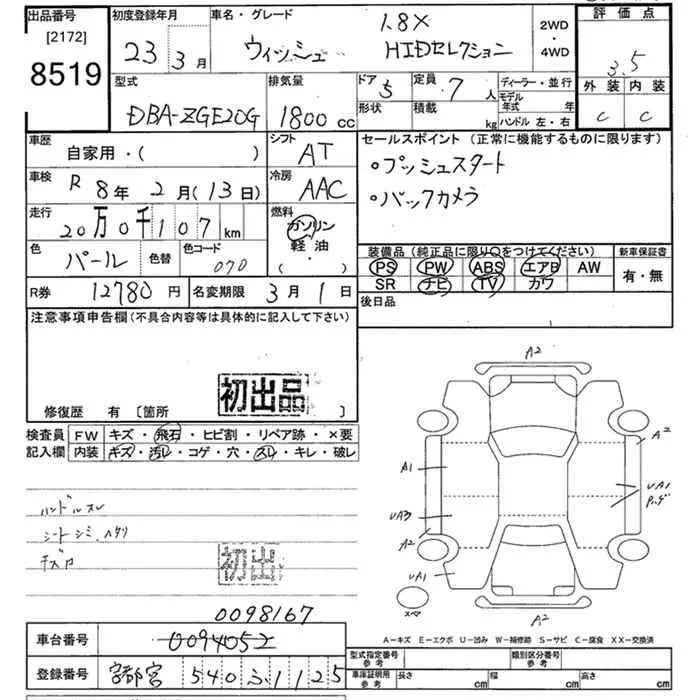 出品番号
[2172]
8519
初度登録年月
23 3月
車名・グレード
ウィッシュ
1.8X
HIDセレクション
2WD
・
4WD
評価点
3.5
外装 内装
C C
型式
DBA-ZGE20G
排気量
1800cc
ドア 5
形状
定員 7人
積載 kg
ディーラー・並行
モデル年式 年式
ハンドル 左・右
車歴
自家用・( )
シフト
AT
セールスポイント (正常に機能するものに限ります)
・プッシュスタート
・バックカメラ
車検
R 8年 2月(13日)
冷房
AAC
走行
20万0千107km
燃料
ガソリン
軽 油
・( )
色
パール
色替
色コード
070
装備品(純正品に限り○をつけてください)
PS PW ABS エアB AW
SR ナビ TV カワ
新車保証書
有・無
R券 12780円
名変期限 3月1日
後日品
注意事項申告欄(不具合内容等は具体的に記入して下さい)
初出品
修復歴 有 〔箇所 〕
検査員
記入欄
FW キズ・飛石・ヒビ割・リペア跡・×要
内装 キズ・汚レ・コゲ・穴・スレ・キレ・破レ
ハンドルスレ
シートシミ、ヘタリ
初出
A2
A2
A1
UA1
UA3
A2
UA1
スペア
A2
A-キズ E-エクボ U-凹み W-補修跡 S-サビ C-腐食 XX-交換済
0098167
車台番号 0094052
登録番号 宇都宮 540 ふ 1125
型式指定番号
参考
類別区分番号
参考
車庫証明用
参考
長さ cm
幅 cm
高さ cm